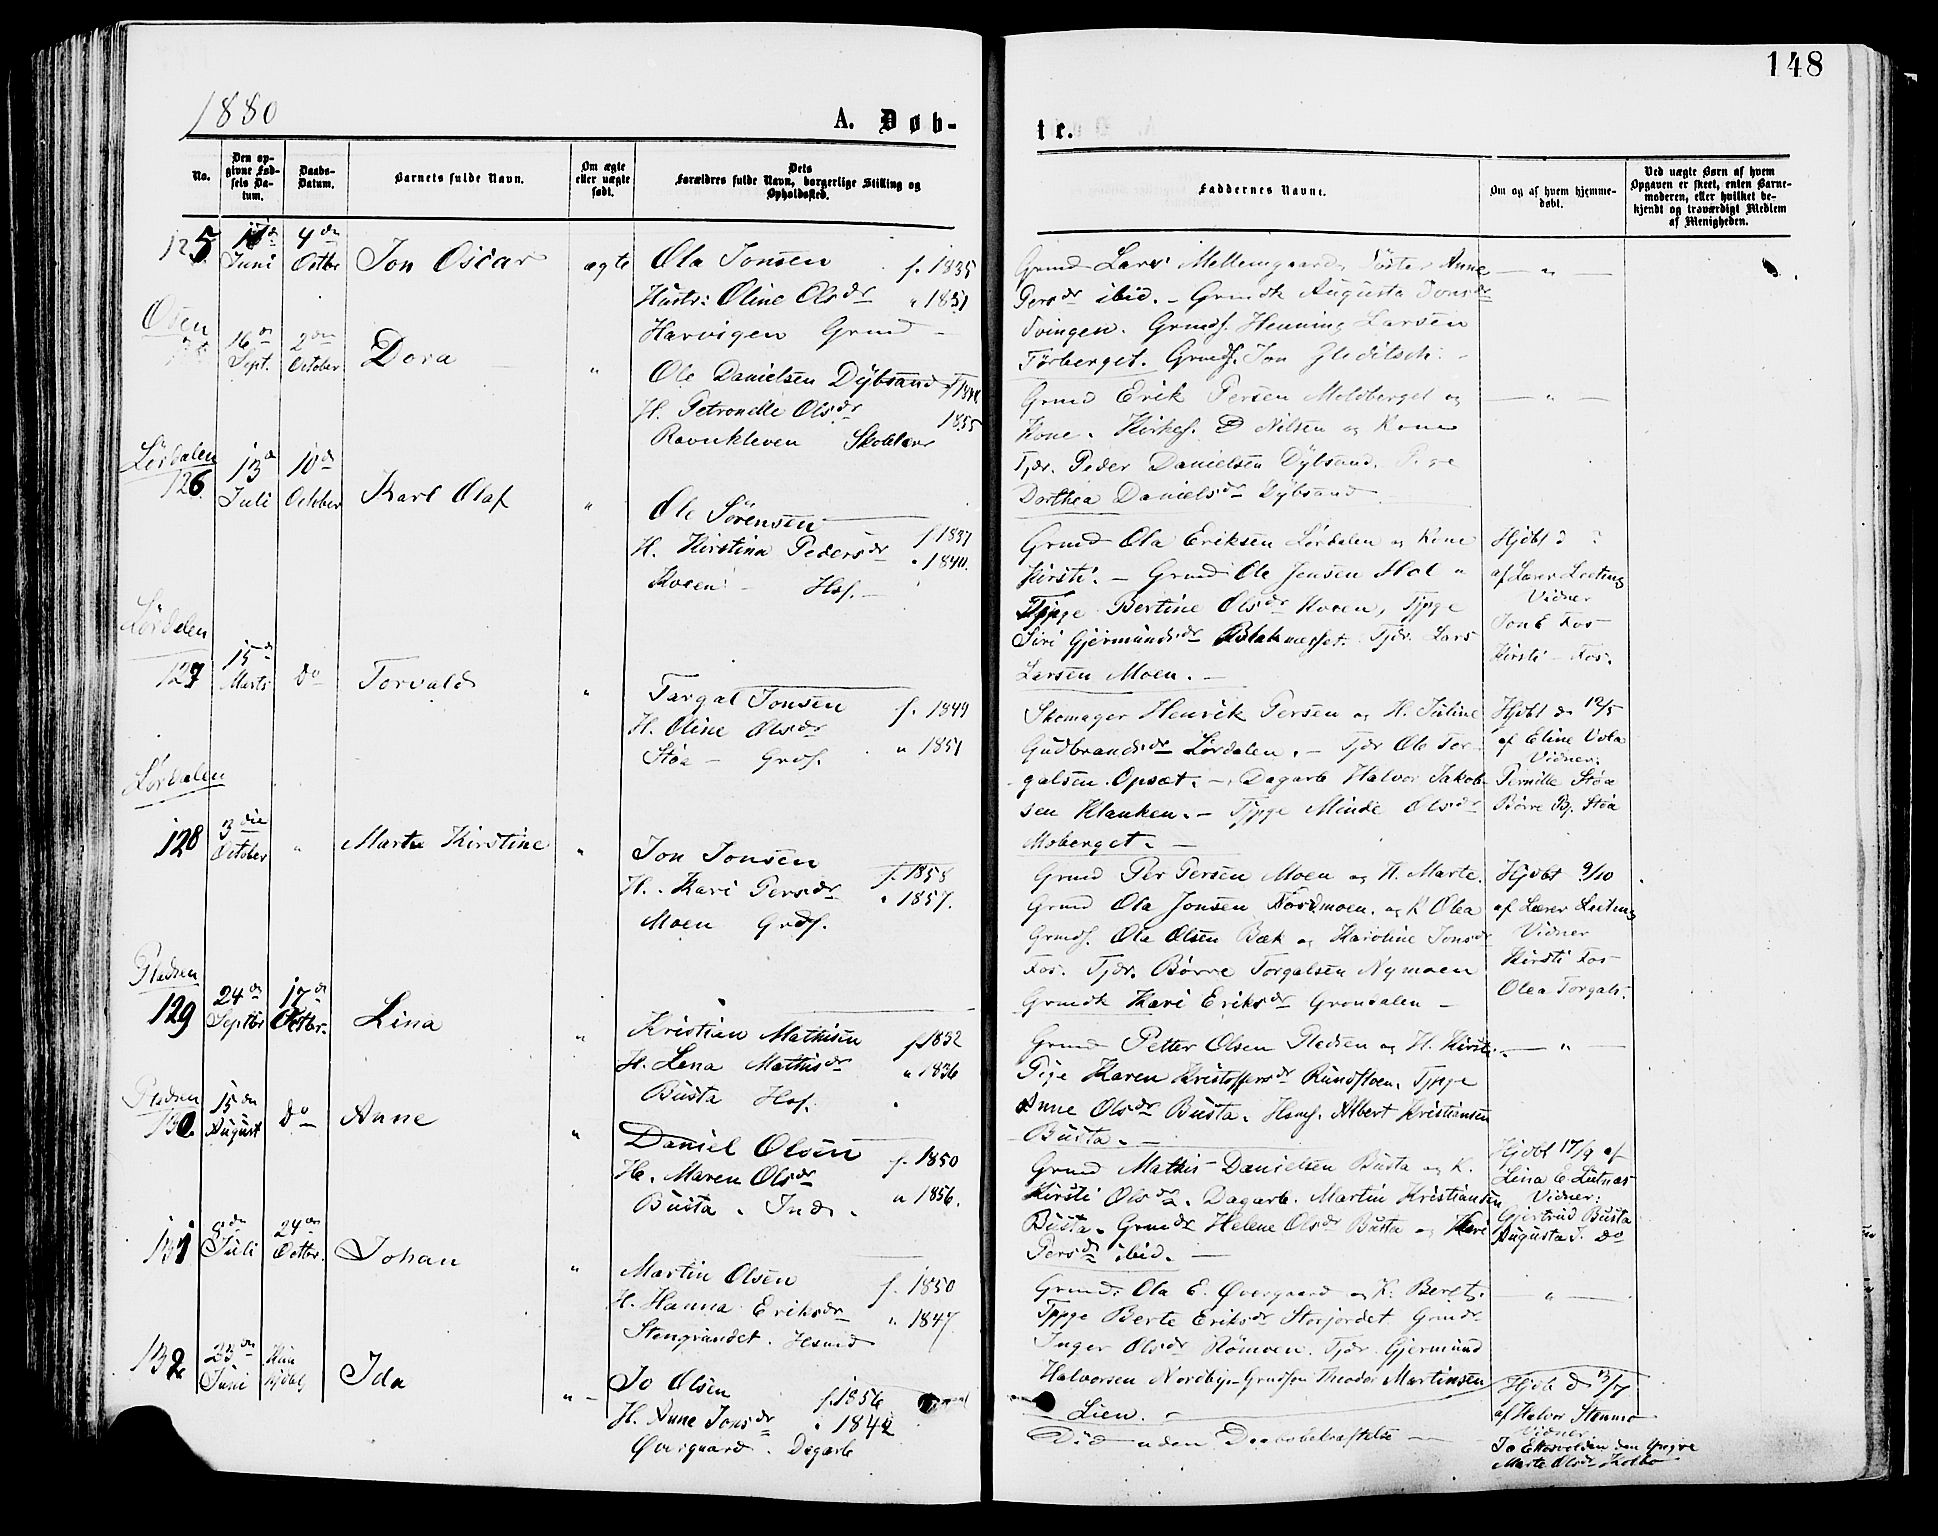 148
1880
A. Døb-
te.
No.
Den op-
givne Fød-
sels Da-
tum.
Daabs-
Datum.
Barnets fulde Navn.
Om ægte
eller uægte
født.
Dets
Forældres fulde Navn, borgerlige Stilling og
Opholdssted.
Faddernes Navne.
Om og af hvem hjemme-
døbt.
Ved uægte Børn af hvem
Opgaven er skeet, enten Barne-
moderen, eller hvilket be-
kjendt og troværdigt Medlem
af Menigheden.
125
Juni
4de
Octbr
Jon Oscar
ægte
Ola Jonsen f. 1835
Hustr: Oline Olsdr " 1851
Harvigen Grmd
Grmd Lars Mellemgaard, Søster Anne
Persdr ibid. - Grmdk Augusta Jonsdr
Svingen. Grmds. Henning Larsen
Törberget. Grmds. Jon Gleditsch.
- " -
Osen
16de
Sept.
2den
October
Dora
"
Ole Danielsen Dÿbsand
H. Petronelle Olsdr 1855
Ravnkleven Skolelærer
Grmd Erik Persen Moldberget og
Kone. Kirkes. D Nilsen og Kone
Tjdr. Peder Danielsen Dÿbsand. Pige
Dorthea Danielsdr Dÿbsand
- " -
Lørdalen
126
13de
Juli
10de
October
Karl Olaf
"
Ole Sörensen f 1837
H. Kirstina Pedersdr " 1840.
Koien - Hsf. -
Grmd Ola Eriksen Lørdalen og Kone
Kirsti. - Grmd Ole Jensen
Tjpge Bertine Olsdr Koien, Tjpge
Siri Gjermundsdr Tjdr. Lars
Larsen Moen. -
Hjdbt d
af Lærer Leeting
Vidner
Jon E Fos
Kirsti - Fos.
Lørdalen
127
15de
Marts
do
Torvald
"
Targal Jonsen f. 1849
H. Oline Olsdr " 1851
Støa - Grdf.
Skomager Henrik Persen og H. Juline
Gudbrandsdr Lørdalen. - Tjdr Ole Tor-
galsen Opsæt. - Dagarb Halvor Jakob-
sen Klanken. - Tjpge Minde Olsdr
Moberget. -
Hjdbt d 12/5
af Eline Vola
Vidner:
Pernille Støa
Börre Bj. Støa
Lørdalen
128
3die
October
"
Marte Kirstine
"
Jon Jonsen f. 1858
H. Kari Persdr " 1857.
Moen Grdf.
Grmd Per Persen Moen og H. Marte.
Grmd Ola Jonsen Nordmoen. og K Olea
Grmdf. Ola Olsen Bæk og Karoline Jonsdr
Fos. Tjdr. Börre Torgalsen Nymoen
Grmdk Kari Eriksdr Grøndalen -
Hjdbt 9/10
af Lærer Leeting
Vidner
Kirsti Fos
Olea Torgals.
Pladsen
129
24de
Septbr
17de
Octbr.
Lina
"
Kristian Mathisen f. 1852
H. Lena Mathisdr " 1836
Busta Hsf.
Grmd Petter Olsen Pladsen og H. Kirsti.
Pige Karen Kristoffersdr Rundfloen. Tjpge
Anne Olsdr Busta. Hsms. Albert Kristiansen
Busta. -
- " -
Pladsen
130
15den
August
do
Anne
"
Daniel Olsen f. 1850
H. Maren Olsdr " 1856.
Busta. Ind.
Grmd Mathis Danielsen Busta og K.
Kirsti Olsdr. Dagarb. Martin Kristiansen
Busta. Grmdk Helene Olsdr Busta og Kari
Persdr ibid. -
Hjdbt 17/9 af
Lina E. Lutnæs
Vidner:
Gjertrud Busta
Augusta J. do
131
8de
Juli
24de
Octbr.
Johan
"
Martin Olsen f. 1850
H. Hanna Eriksdr " 1847
Stengrundet. Hsmd
Grmd. Ola E. Øvergaard og K. Beret.
Tjpge Berte Eriksdr Storjordet. Grmdk
Inger Olsdr Römoen. Tjdr. Gjermund
Halvorsen Nordby. Grmdsøn Theodor Martinsen
Lien. -
- " -
132
23de
Juni
Kun
hjdbt
Ida
" -
Jo Olsen f. 1856
H. Anne Jonsdr " 1842
Øvergaard. Dagarb
Død uden Daabsbekræftelse -
Hjdb d 13/7
af Halvor Stenmo
Vidner
Jo E Mosvolden den Yngre
Marte Olsdr Kolbo